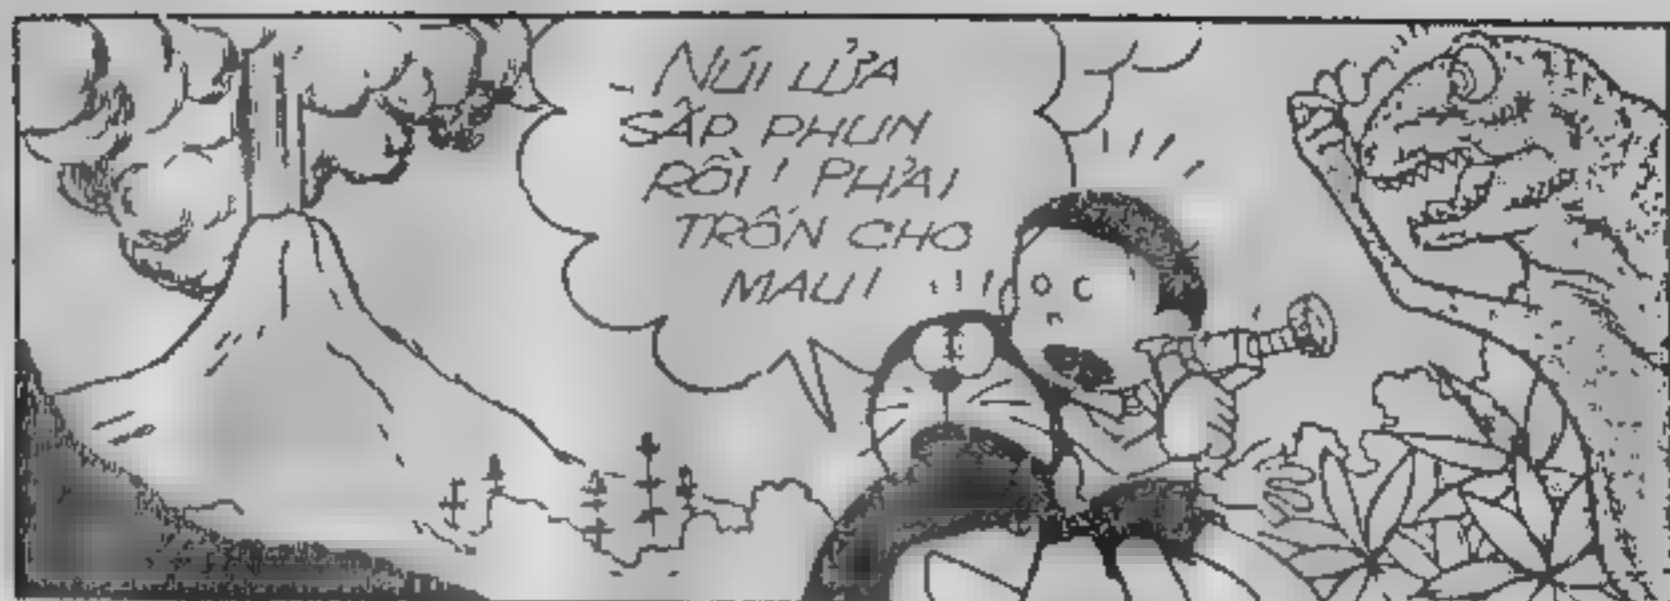 - NÚI LỬA
SẮP PHUN
RỒI! PHẢI
TRỐN CHO
MAU!